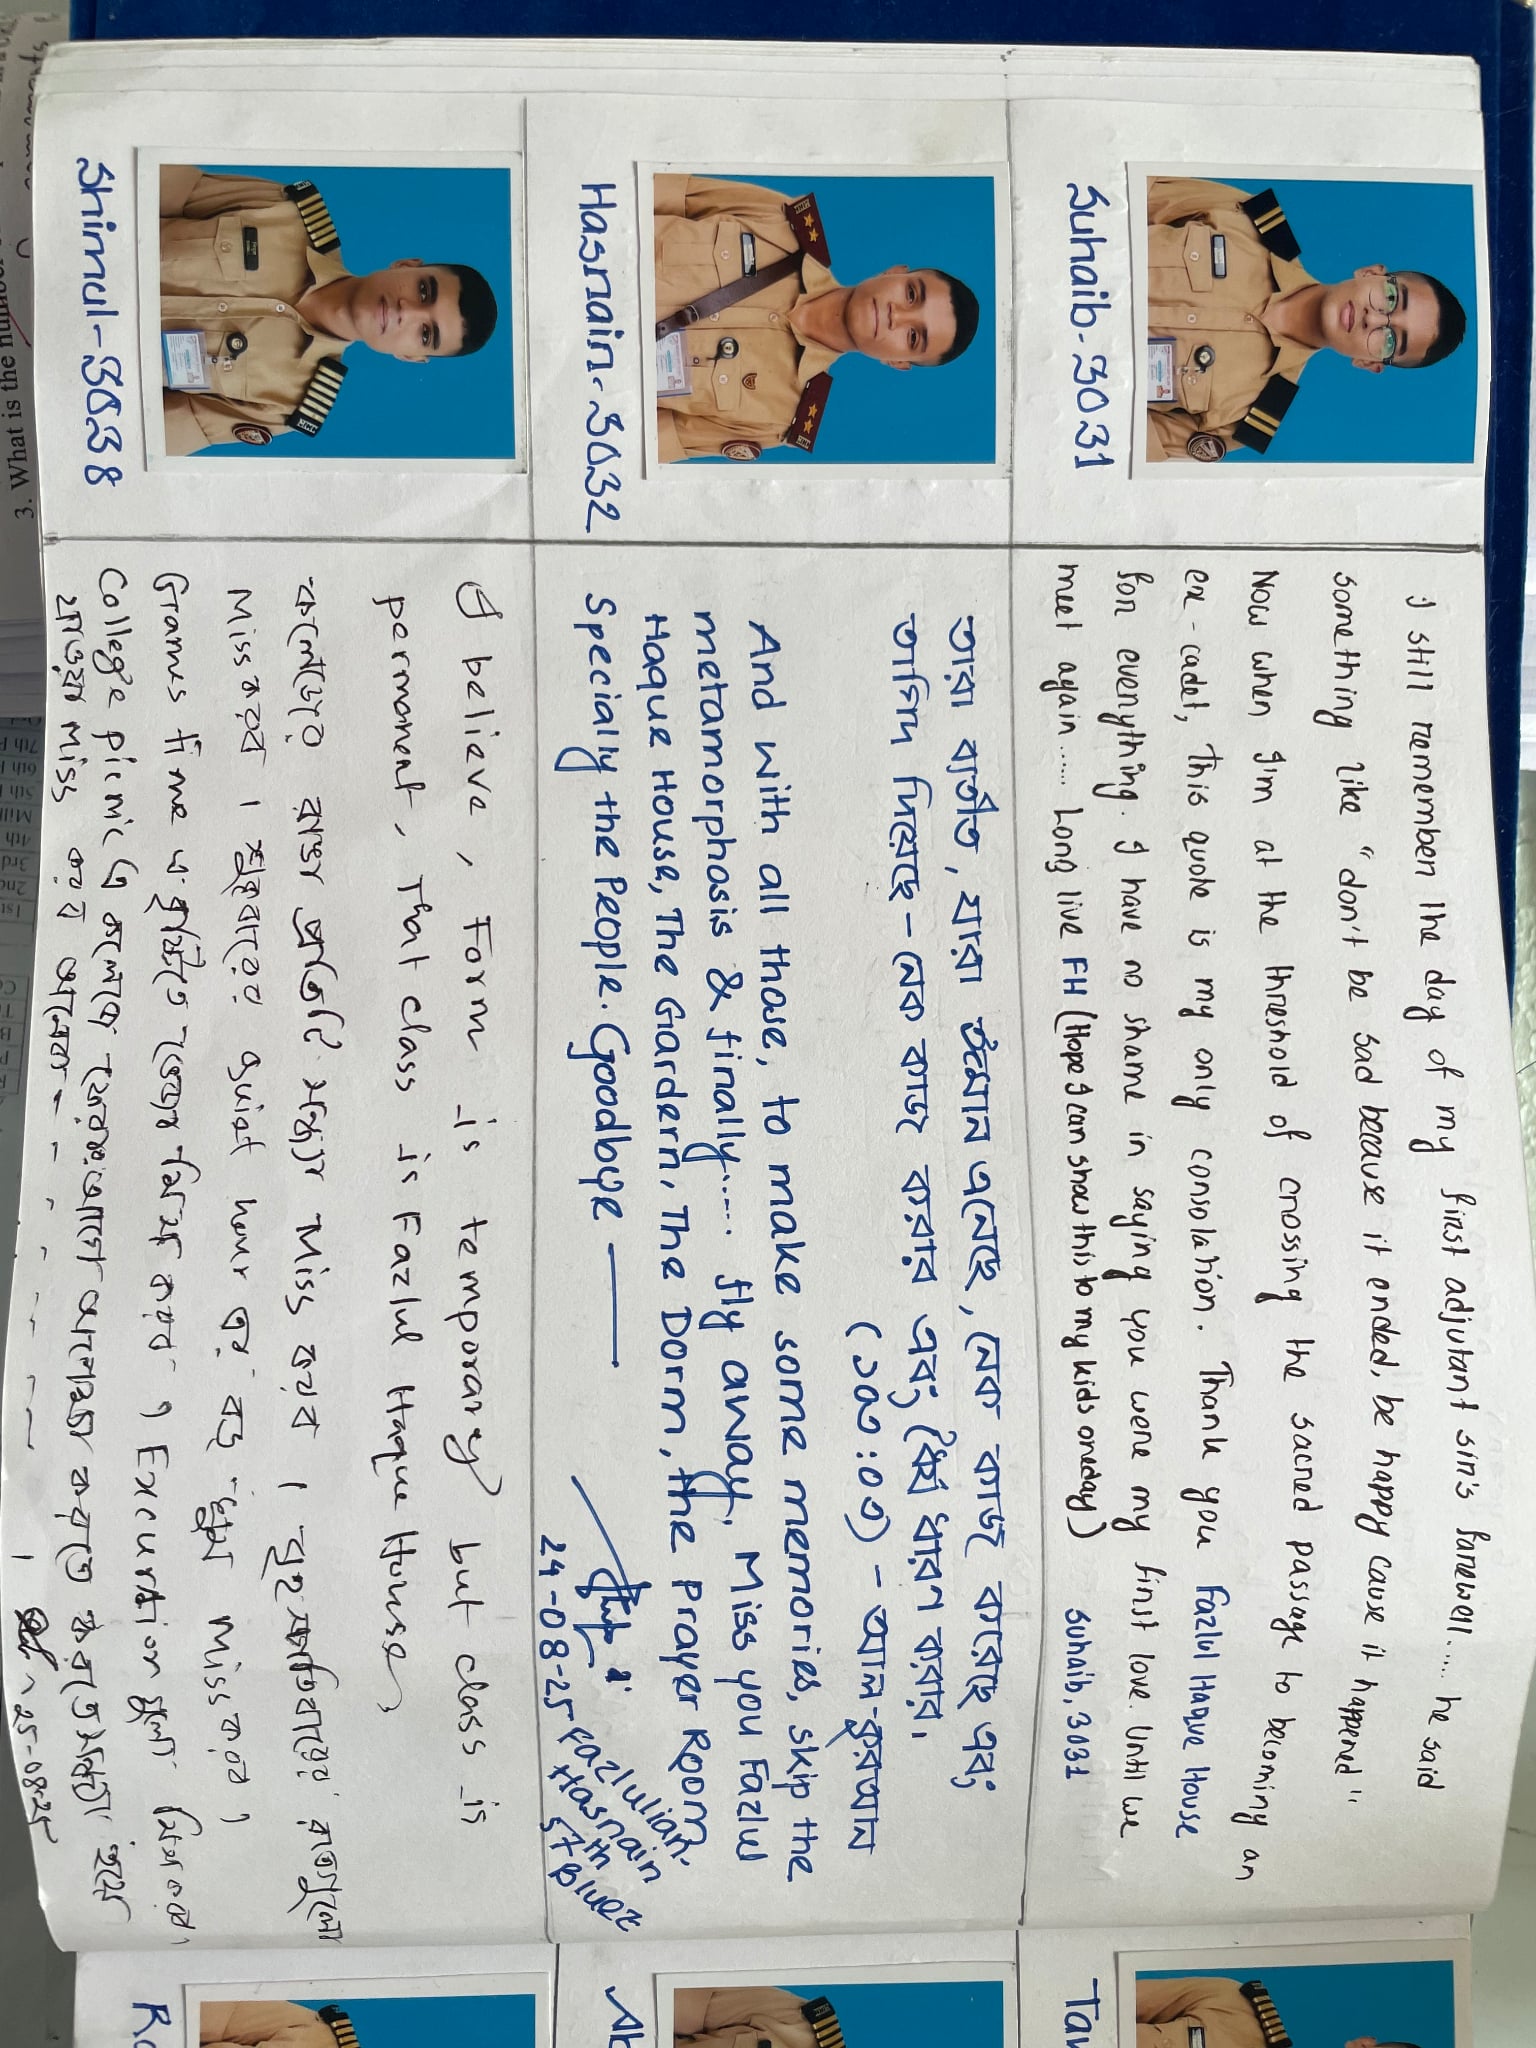 I still remember the day of my first adjutant sir's farewell..... he said
something like "don't be sad because it ended, be happy cause it happened"
Now when I'm at the threshold of crossing the sacred passage to becoming an
ex-cadet, this quote is my only consolation. Thank you Fazlul Haque House
for everything. I have no shame in saying you were my first love. Until we
meet again...... Long live FH (Hope I can show this to my kids oneday) Suhaib, 3031
Suhaib-3031
তারা ব্যতীত, যারা ঈমান এনেছে, নেক কাজ করেছে এবং
তাগিদ দিয়েছে – নেক কাজ করার এবং ধৈর্য ধারণ করার।
(১০৩:০৩) – আল-কুরআন
And with all those, to make some memories, skip the
metamorphosis & finally..... fly away. Miss you Fazlul
Haque House, The Gardern, The Dorm, the Prayer Room
Specially the People. Goodbye —
24-08-25
Fazlulian.
Hasnain
57th
Bluez
Hasnain-3032
I believe, Form is temporary but class is
permanent, That class is Fazlul Haque House,
কলেজের রাঙা প্রতিটি সন্ধ্যা Miss করব । বৃহস্পতিবারের রাতগুলো
Miss করব । শুক্রবারের quiet hour এর বড় ঘুম Miss করব ।
Games time এ বৃষ্টিতে ভেজা মিস করব । Excursion গুলো মিস করব ।
College picnic এ কলেজে ফেরার আগে অপেক্ষা করতে করতে সন্ধ্যা হয়ে
যাওয়া miss করব অনেক - - - - - - - - ।
25-08-25
Shimul-3038
Tav
Ab
Ra
3. What is the